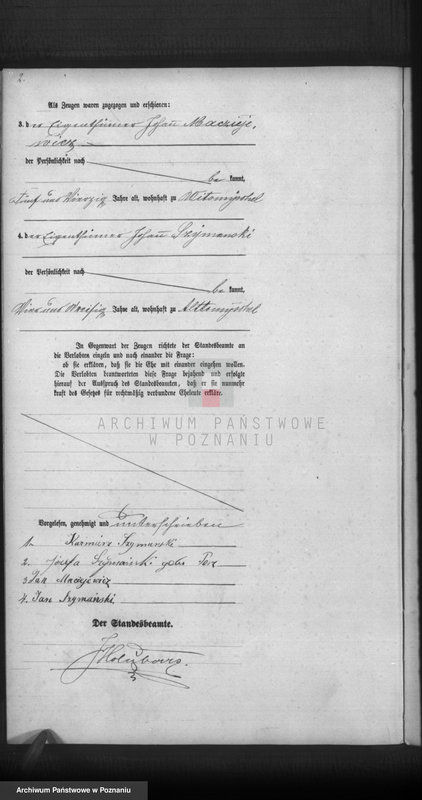 2.
Als Zeugen waren zugezogen und erschienen:
3. der Eigenthümer Johann Macieje-
wicz
der Persönlichkeit nach
be kannt,
fünf und vierzig Jahre alt, wohnhaft zu Altomyschel
4. der Eigenthümer Johann Szymanski
der Persönlichkeit nach
be kannt,
Vier und dreißig Jahre alt, wohnhaft zu Alttomyschel
In Gegenwart der Zeugen richtete der Standesbeamte an
die Verlobten einzeln und nach einander die Frage:
ob sie erklären, daß sie die Ehe mit einander eingehen wollen.
Die Verlobten beantworteten diese Frage bejahend und erfolgte
hierauf der Ausspruch des Standesbeamten, daß er sie nunmehr
kraft des Gesetzes für rechtmäßig verbundene Eheleute erkläre.
ARCHIWUM PAŃSTWOWE
W POZNANIU
Vorgelesen, genehmigt und unterschrieben
1. Kazmierz Szymanski
2. Józefa Szymański geb.
3 Jan Maciejewicz
4. Jan Szymański.
Der Standesbeamte.
Archiwum Państwowe w Poznaniu